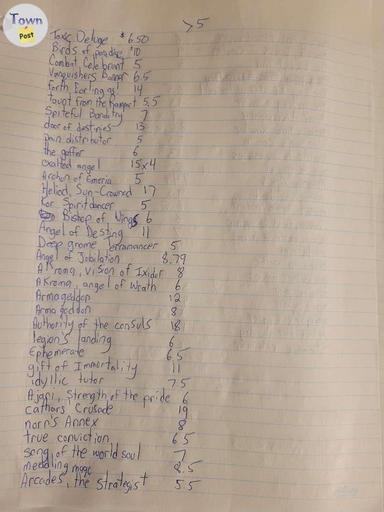 Town
Post
>5
Toxic Deluge $6.50
Birds of paradise $10
Combat Celebrant 5
Vanquishers Banner 6.5
forth Eorlingas! 14
taunt from the Rampart 5.5
Spiteful Banditry 7
door of destinies 13
pain distributor 5
the gaffer 6
exalted angel 15x4
Archon of Emeria 5
Heliod, Sun-Crowned 17
Kor Spiritdancer 5
Bishop of Wings 6
Angel of Destiny 11
Deep gnome Terramancer 5
Angel of Jubilation 8.79
Akroma, Vision of Ixidor 8
Akroma, angel of Wrath 6
Armageddon 12
Armageddon 8
Authority of the consuls 18
legion's landing 6
Ephemerate 6.5
gift of Immortality 11
idyllic tutor 7.5
Ajani, Strength of the pride 6
cathars Crusade 19
norn's Annex 8
true conviction 6.5
song of the world soul 7
meddling mage 8.5
Arcades, the Strategist 5.5